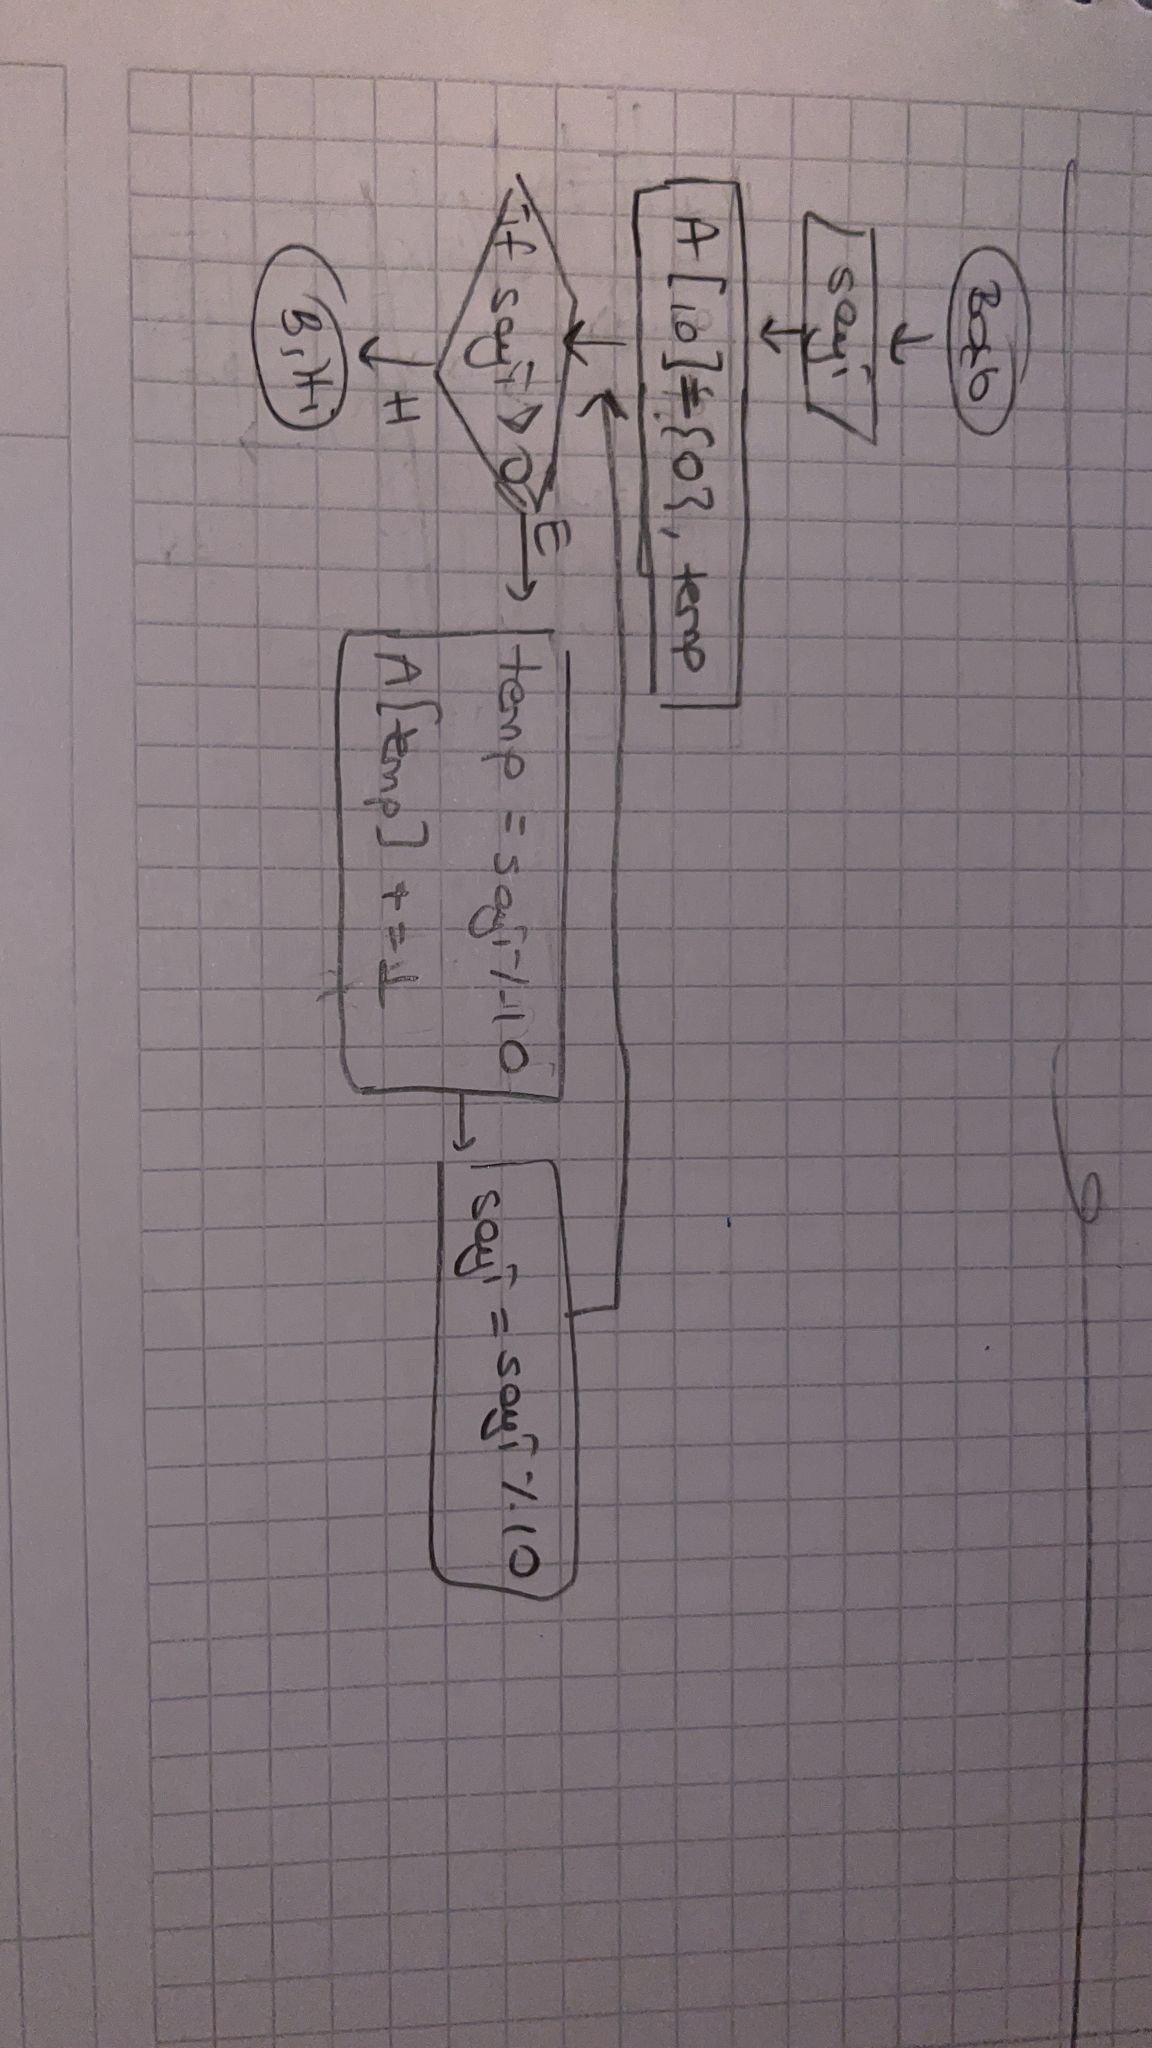 Başla
sayi
A[10]={0}, temp
if sayi > 0
E
temp = sayi % 10
A[temp] += 1
sayi = sayi % 10
H
Bitti